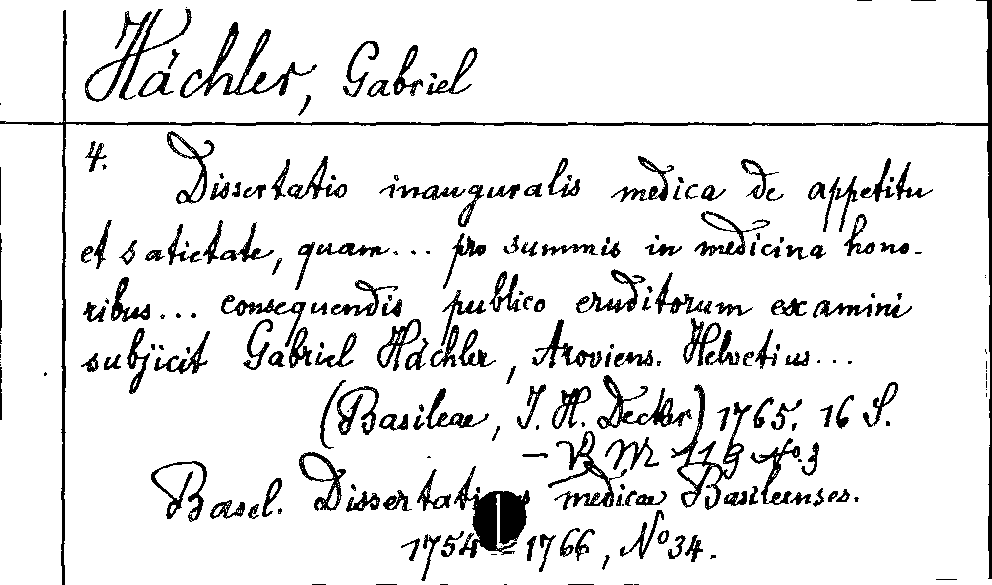 Hächler, Gabriel
4.
Dissertatio inauguralis medica de appetitu
et satietate, quam... pro summis in medicina hono-
ribus... consequendis publico eruditorum examini
subjicit Gabriel Hächler, Aroviens. Helvetius...
(Basileae, J. H. Decker) 1765. 16 S.
No. 3
Basel. Dissertationes medicae Basileenses.
1754-1766, No 34.